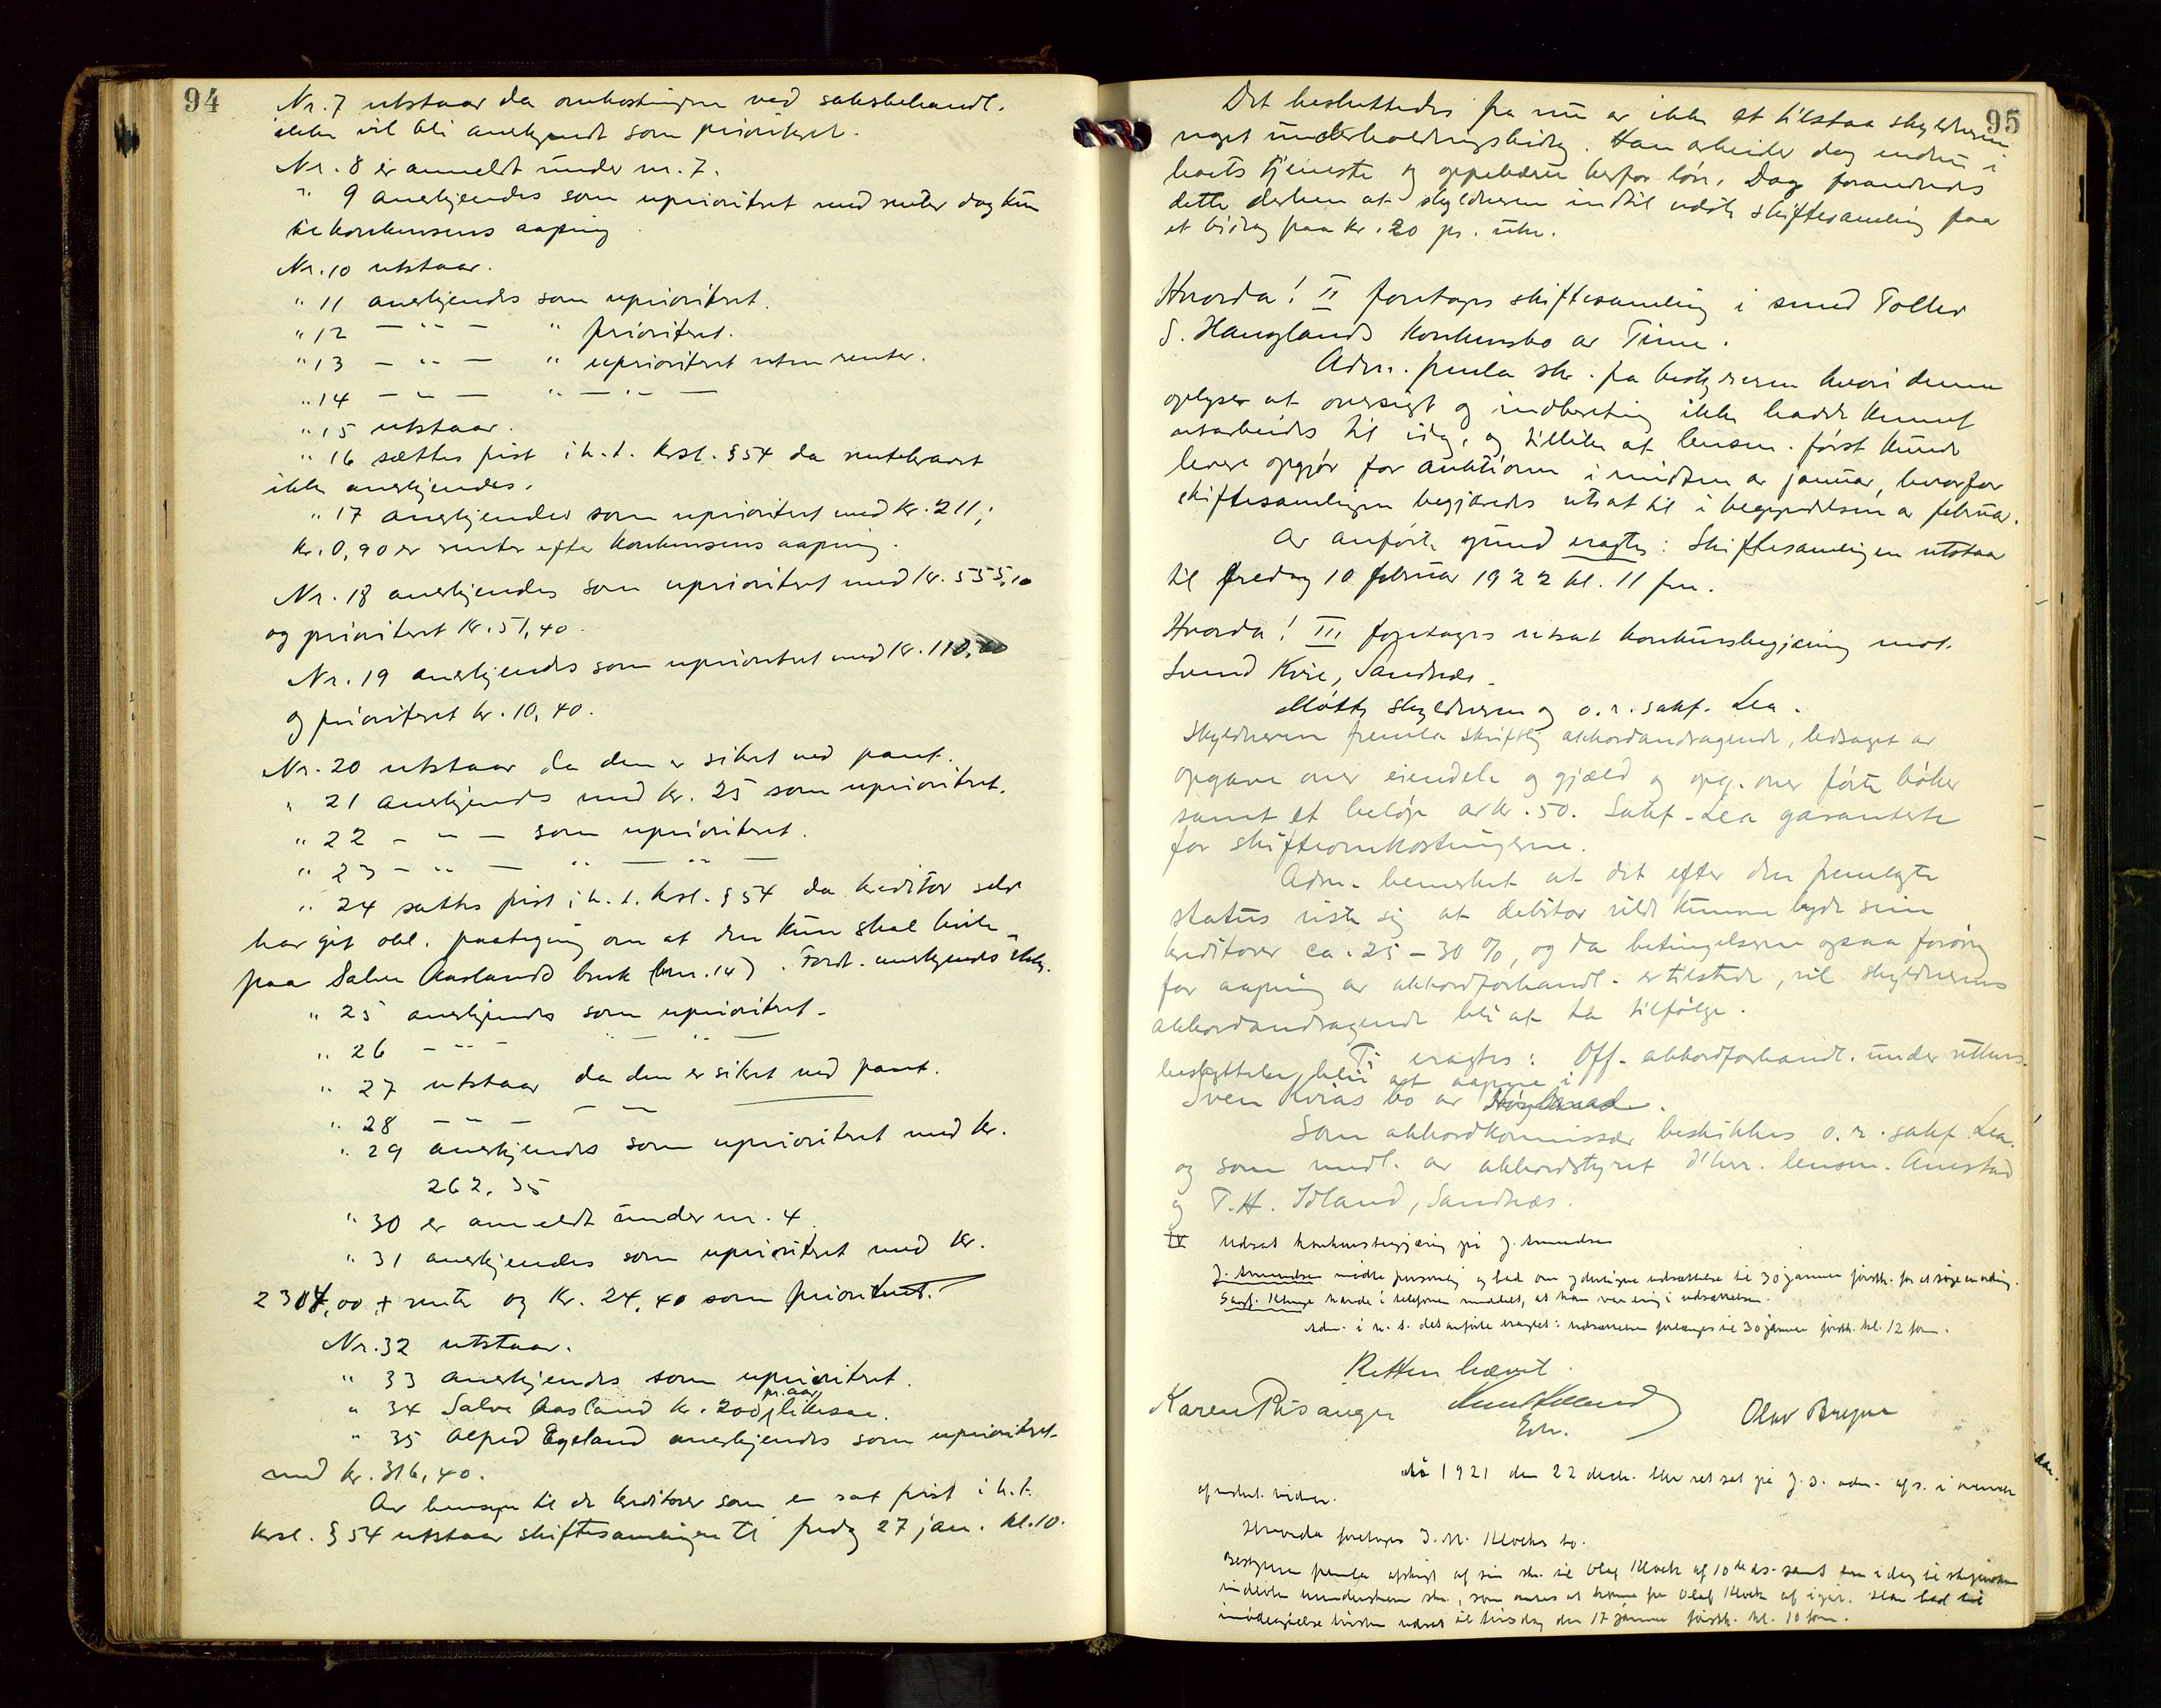 94
Nr. 7 utstaar da omkostningene ved saksbehandl.
ikke vil bli anerkjendt som prioritert.
Nr. 8 er anmeldt under nr. 7.
" 9 anerkjendes som uprioritert med renter dog kun
til konkursens aapning
Nr. 10 utstaar.
" 11 anerkjendes som uprioritert.
" 12 — " — " prioritert.
" 13 — " — " uprioritert uten renter.
" 14 — " — " — " —
" 15 utstaar.
" 16 sættes frist i h. t. krsl. § 54 da rentekravet
ikke anerkjendes.
" 17 anerkjendes som uprioritert med kr. 211;
kr. 0,90 er renter efter konkursens aapning.
Nr. 18 anerkjendes som uprioritert med kr. 555,10
og prioritert kr. 51,40.
Nr. 19 anerkjendes som uprioritert med kr. 110,
og prioritert kr. 10,40.
Nr. 20 utstaar da den er sikret ved pant.
" 21 anerkjendes med kr. 25 som uprioritert.
" 22 — " — som uprioritert.
" 23 — " — " — " —
" 24 sættes frist i h. t. krsl. § 54 da kreditor selv
har git obl. paategning om at den kun skal hvile
paa Salve Aaslands bruk (bnr. 14). Fordr. anerkjendes ikke.
" 25 anerkjendes som uprioritert.
" 26 — " — — " —
" 27 utstaar da den er sikret ved pant.
" 28 — " — — —
" 29 anerkjendes som uprioritert med kr.
262.35
" 30 er anmeldt under nr. 4.
" 31 anerkjendes som uprioritert med kr.
2304,00 + renter og kr. 24,40 som prioritert.
Nr. 32 utstaar.
" 33 anerkjendes som uprioritert.
" 34 Salve Aasland kr. 200 pr. aar likesaa.
" 35 Alfred Egeland anerkjendes som uprioritert
med kr. 316,40.
Av hensyn til de kreditorer som er sat frist i h. t.
krsl. § 54 utstaar skiftesamlingen til fredag 27 jan. kl. 10.
95
Det besluttedes fra nu av ikke at tilstaa skyldneren
noget underholdningsbidrag. Han arbeider dog endnu i
boets tjeneste og oppebærer herfor løn. Dog forandredes
dette derhen at skyldneren indtil næste skiftesamling faar
et bidrag paa kr. 20 pr. uke.
Hvorda! II foretages skiftesamling i smed Tollev
S. Hauglands konkursbo av Time.
Adm. fremla skr. fra bestyreren hvori denne
oplyser at oversigt og indberetning ikke hadde kunnet
utarbeides til idag, og tillike at lensm. først kunde
levere opgjør for auktionen i midten av januar, hvorfor
skiftesamlingen begjæredes utsat til i begyndelsen av februar.
Av anførte grund eragtes: Skiftesamlingen utstaar
til fredag 10 februar 1922 kl. 11 fm.
Hvorda! III foretages utsat konkursbegjæring mot
Svend Kvie, Sandnes.
Møtte skyldneren og o. r. sakf. Lea.
Skyldneren fremla skriftlig akkordandragende, ledsaget av
opgave over eiendele og gjæld og opg. over førte bøker
samt et beløp av kr. 50. Sakf. Lea garanterte
for skifteomkostningerne.
Adm. bemerket at det efter den fremlagte
status viste sig at debitor vilde kunne byde sine
kreditorer ca. 25 – 30 %, og da betingelserne ogsaa forøvrig
for aapning av akkordforhandl. er tilstede, vil skyldnerens
akkordandragende bli at ta tilfølge.
Ti eragtes: Off. akkordforhandl. under utkurs
beskyttelse blir at aapne i
Sven Kvias bo av .
Som akkordkommissær beskikkes o. r. sakf. Lea.
og som medl. av akkordstyret d'hrr. lensm. Aurstad
og T. H. Idland, Sandnes.
IV Udsat konkursbegjæring på J. Amundsen
J. Amundsen mødte personlig og bad om yderligere udsættelse til 30 januar førstk. for at søge en ordning.
Sagf. Kluge havde i telefonen meddelt, at han var enig i udsættelsen.
Adm. i h. t. det anførte eragtet: Udsættelsen forlænges til 30 januar førstk. kl. 12 form.
Retten hævet.
Karen Risanger Olav Bryne
År 1921 den 22 decbr. blev ret sat på J. S. adm. af s. i overvær
af undert. vidner.
Hvorda foretages J. M. Klocks bo.
Bestyreren fremla afskrift af sin skr. til Olaf Klock af 10de ds. samt en idag til
indløben skr., som antas at komme fra Olaf Klock af igår. Han bad til
imødegåelse heraf udsat til tirsdag den 17 januar førstk. kl. 10 form.